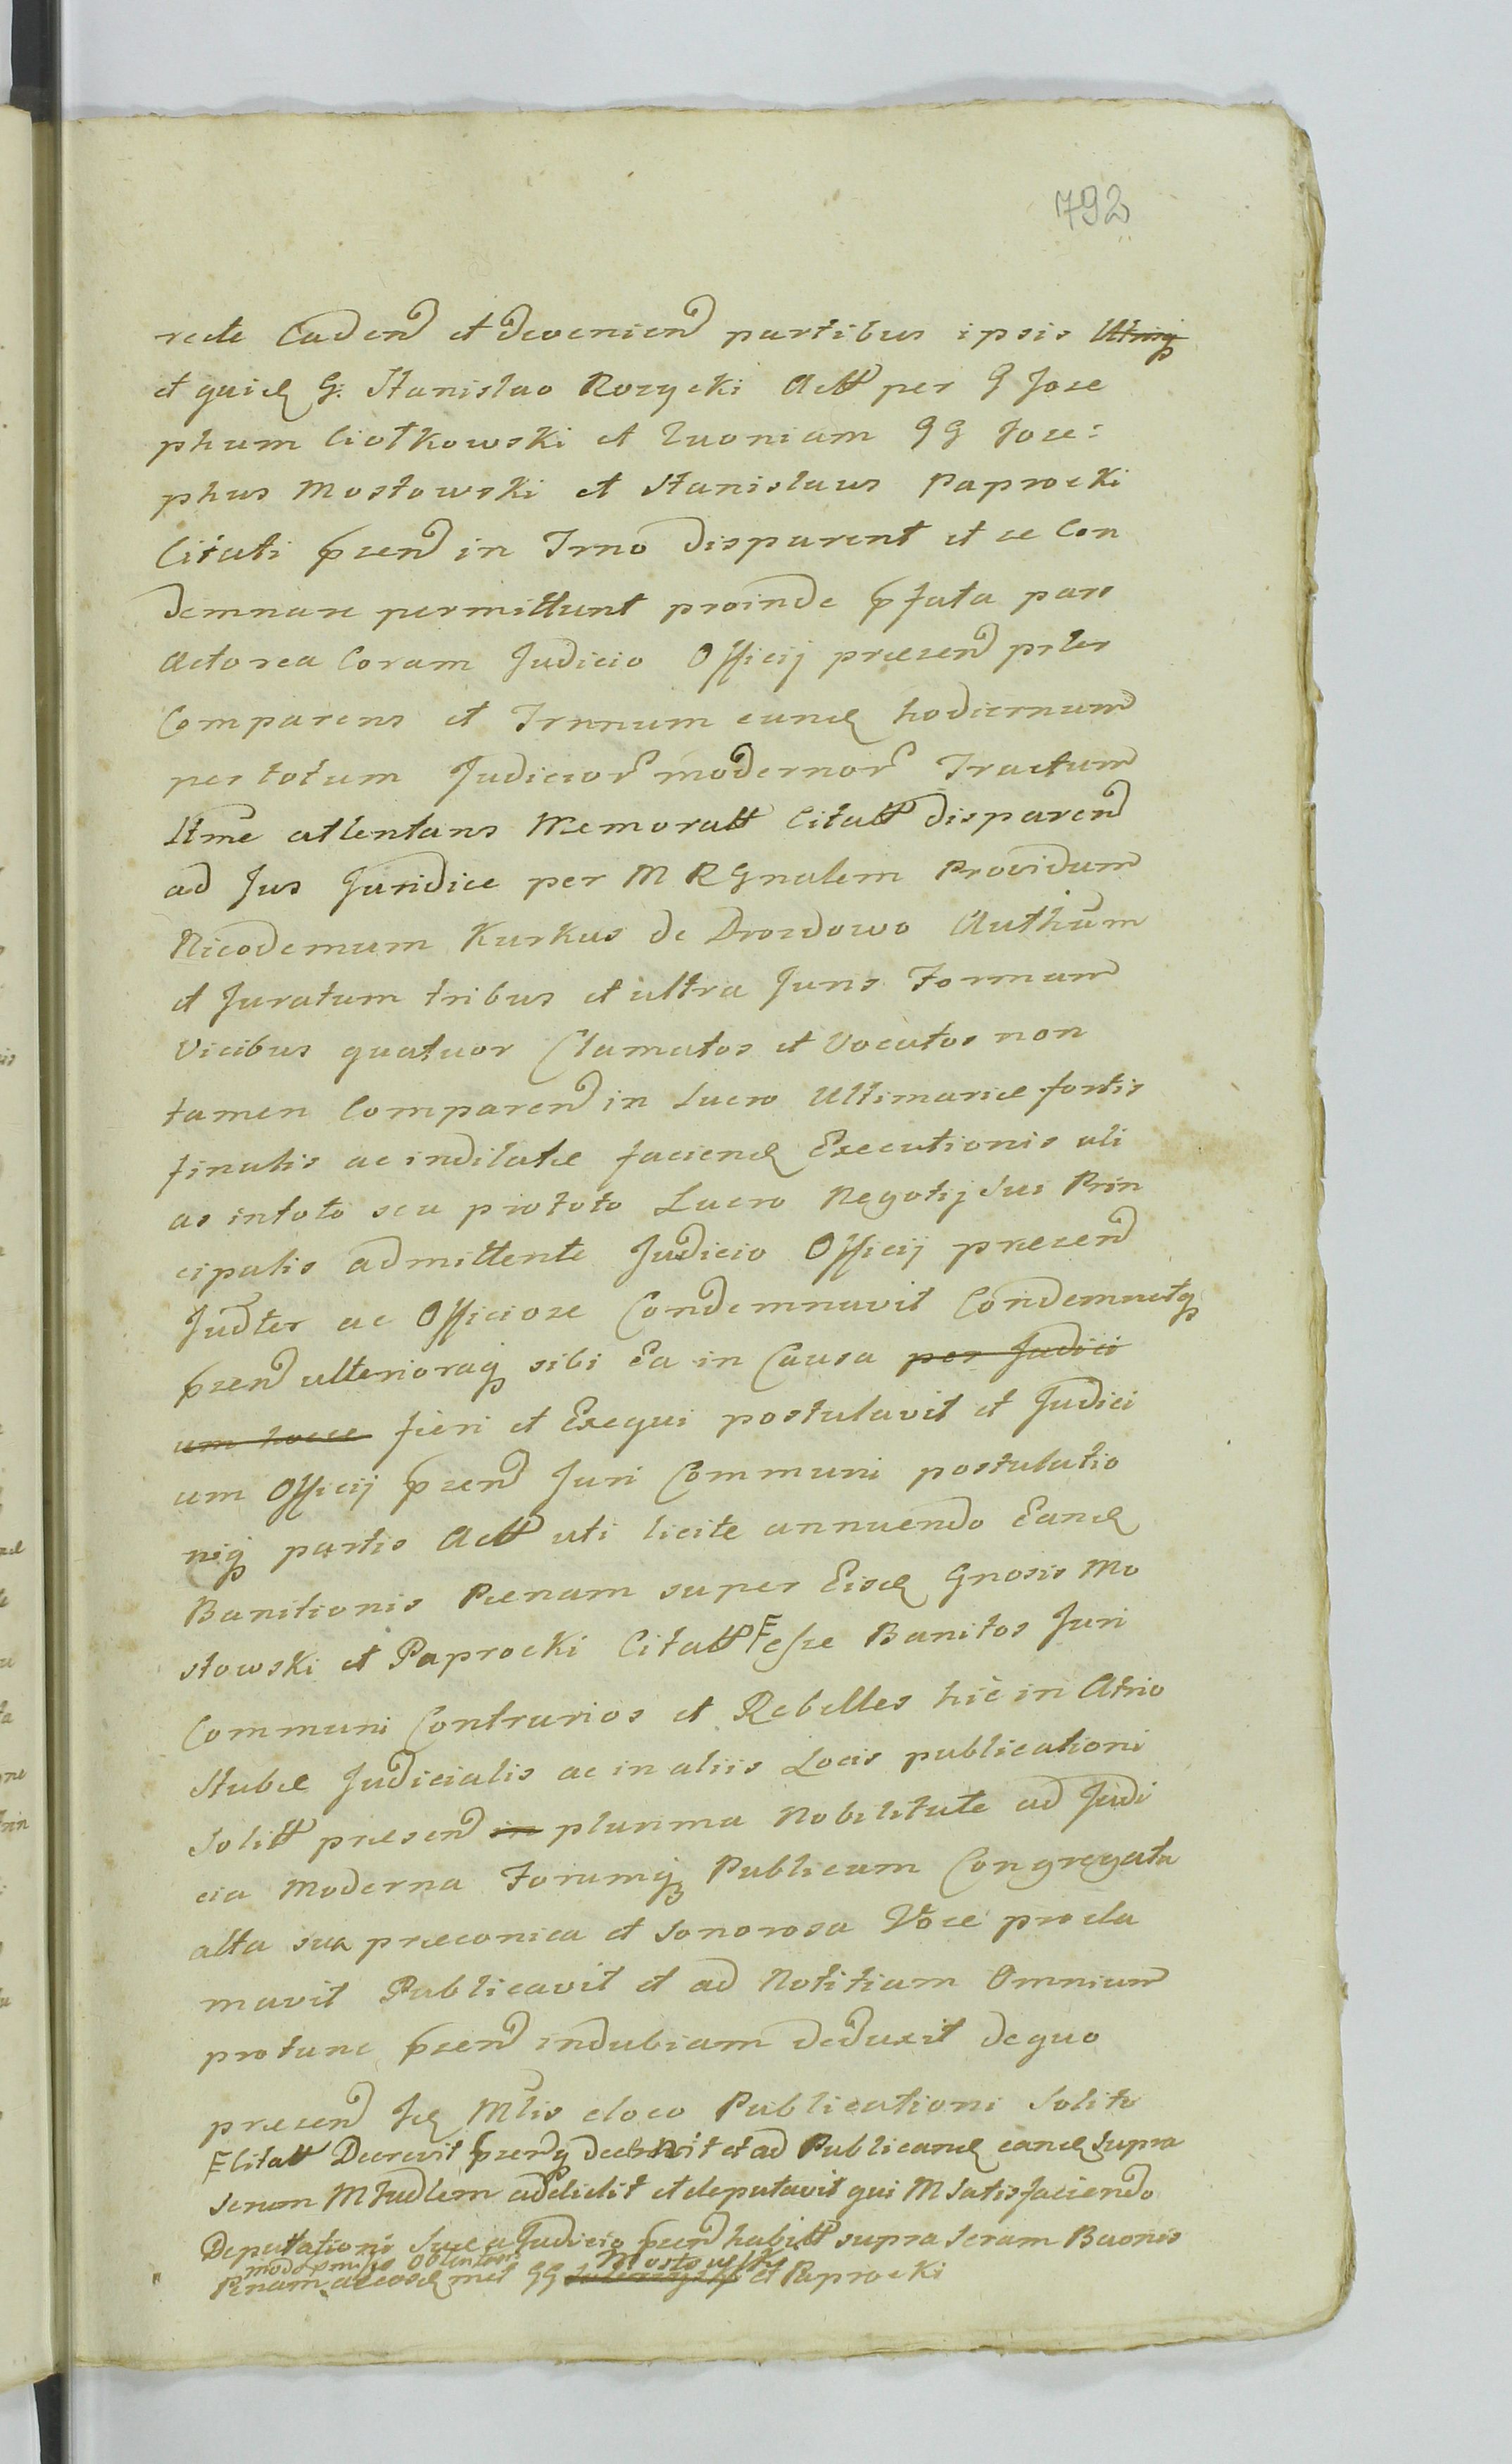 792
recte Cadend et Deveniend partibus ipsis Utrinq
et quid G: Stanislao Rozycki Actt per G Jose
phum Ciołkowski et Quoniam GG Jose:
phus Mostowski et Stanislaus Paprocki
Citati przend in Trno Disparent et se Con
demnare permittunt proinde pfata pars
Actorea Coram Judicio Officij præsend prler
Comparens et Trnnum eund hodiernum
per totum Judicior modernor Tractum
ltme attentans Memoratt Citatt disparend
ad Jus Juridice per M R Gnalem Providum
Nicodemum Kurkus de Drozdowo Authum
et Juratum tribus et ultra Juris Formam
Vicibus quatuor Clamatos et Vocatos non
tamen Comparend in Lucro Ultimariæ fortis
finalis ac indilatæ faciend Executionis ali
as in toto seu pro toto Lucro Negotij Sui Prin
cipalis admittente Judicio Officij præsend
Judter ac Officiose Condemnavit Condemnatq
przend ulterioraq sibi Ea in Causa per Judici
um hocce fieri et Exequi postulavit et Judici
um Officij przend Juri Communi postulatio
niq partis Actt uti licite annuendo Eand
Banitionis Pænam super Eisd Gnosis Mo
stowski et Paprocki Citatt esse Banitos Juri
Communi Contrarios et Rebelles hic in Atrio
Stubæ Judicialis ac in aliis Locis publicationi
Solitt præsend in plurima Nobilitate ad Judi
cia Moderna Forumq Publicum Congregata
alta sua præconica et Sonorosa Voce procla
mavit Publicavit et ad Notitiam Omnium
protunc przend indubiam deduxit de quo
præsend Jd Mlis eloco Publicationi Solito
Citatt Decrevit przenq decrevit et ad Publicand eand supra
Seram M Judlem addidit et deputavit qui M Satisfaciendo
Deputationi Suæ a Judicio przend habitt supra Seram Baonis
modo Obtentam Mostowski
Pænam ac eosd met GG et Paprocki